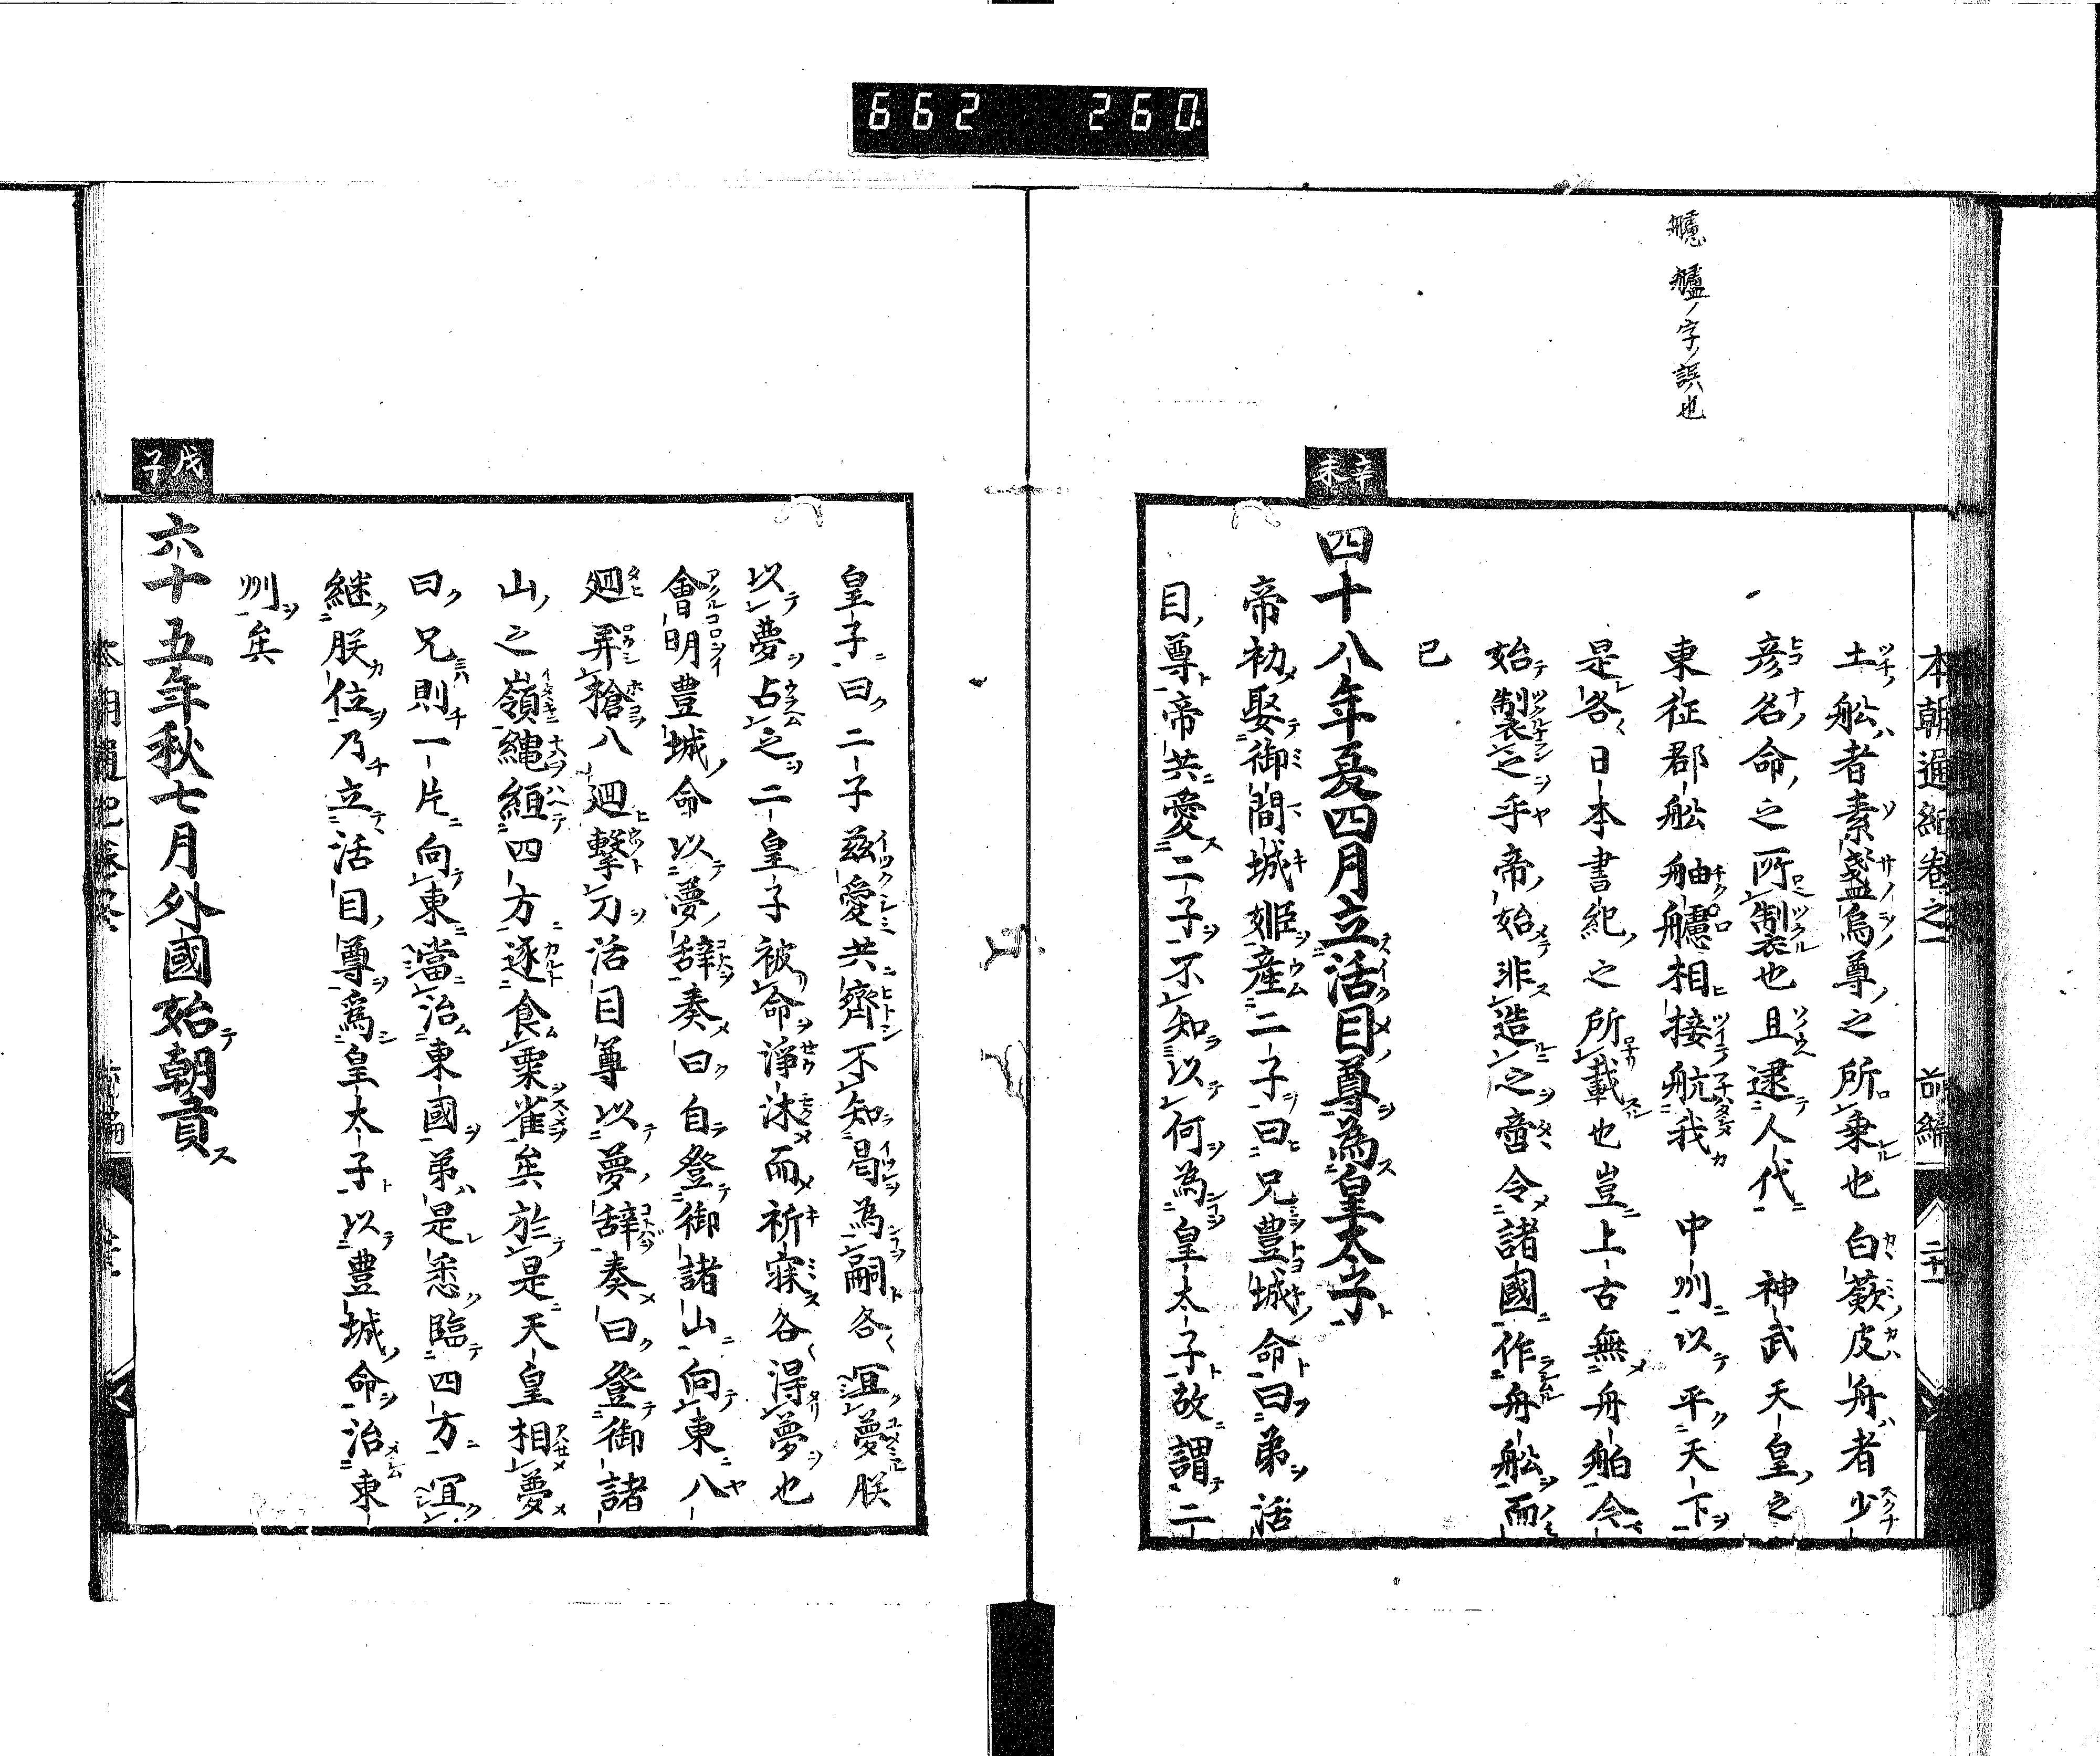 662 260
艫 艫ノ字ノ誤也
本朝通紀卷之一 前編 二十一
土舩者素盞烏尊之所乗也白蘞皮舟者少
彦名命之所製也且逮人代 神武天皇之
東征郡舩舳艫相接航我 中州以平天下
是各日本書紀之所載也豈上古無舟舶今
始製之乎帝始非造之啻令諸國作舟舩而
已
辛未
四十八年夏四月立活目尊為皇太子
帝初娶御間城姫産二子曰兄豊城命曰弟活
目尊帝共愛二子不知以何為皇太子故謂二
皇子曰二子茲愛共齊不知曷為嗣各宜夢朕
以夢占之二皇子被命淨沐而祈寐各得夢也
會明豊城命以夢辭奏曰自登御諸山向東八
廻弄槍八廻撃刀活目尊以夢辞奏曰登御諸
山之嶺縄絙四方逐食粟雀矣於是天皇相夢
曰兄則一片向東當治東國弟是悉臨四方宜
継朕位乃立活目尊為皇太子以豊城命治東
州矣
戊子
六十五年秋七月外國始朝貢